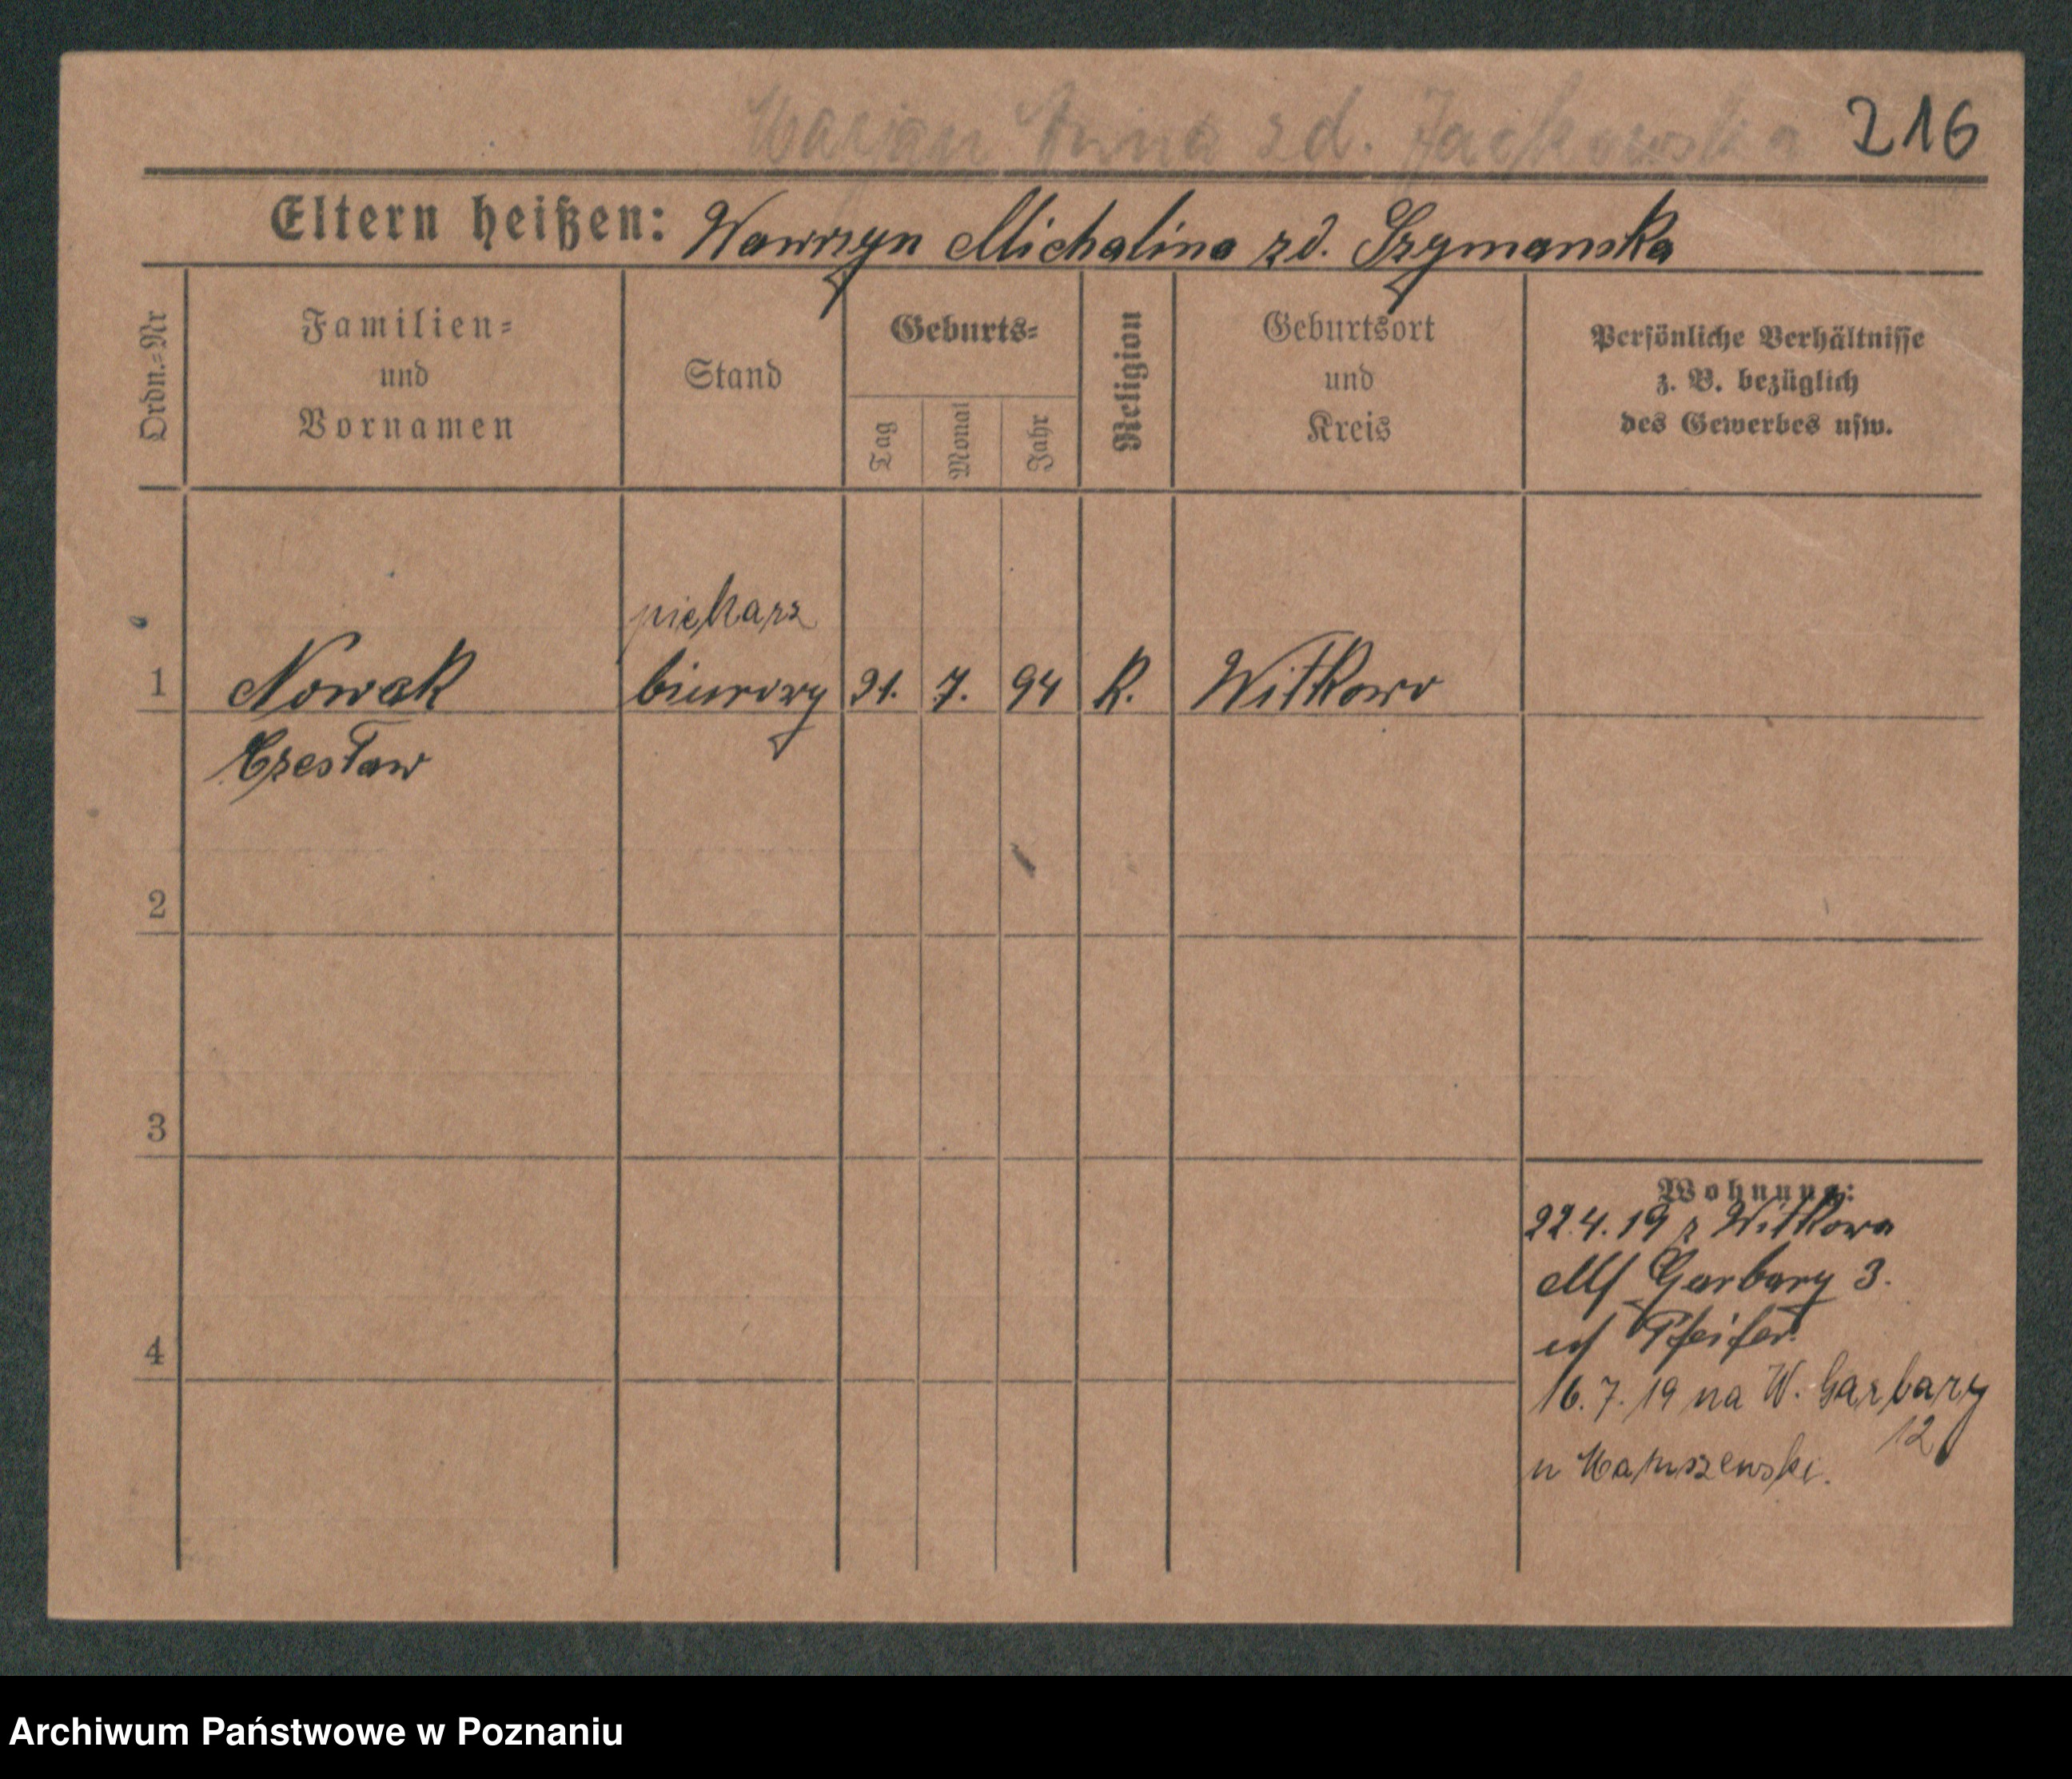 Marjan Anna zd. Jackowska 216
Eltern heißen: Wawrzyn Michalina zd. Szymanska
Ordn.=Nr
Familien=
und
Vornamen
Stand
Geburts=
Tag
Monat
Jahr
Religion
Geburtsort
und
Kreis
Persönliche Verhältnisse
z. B. bezüglich
des Gewerbes usw.
piekarz
1 Nowak biurowy 21. 7. 94 K. Witkowo
Czesław
2
3
4
Wohnung:
22.4.19 z Witkowa
Garbary 3.
Pfeifer.
16.7.19 na W. Garbary
12
u Matuszewski.
Archiwum Państwowe w Poznaniu